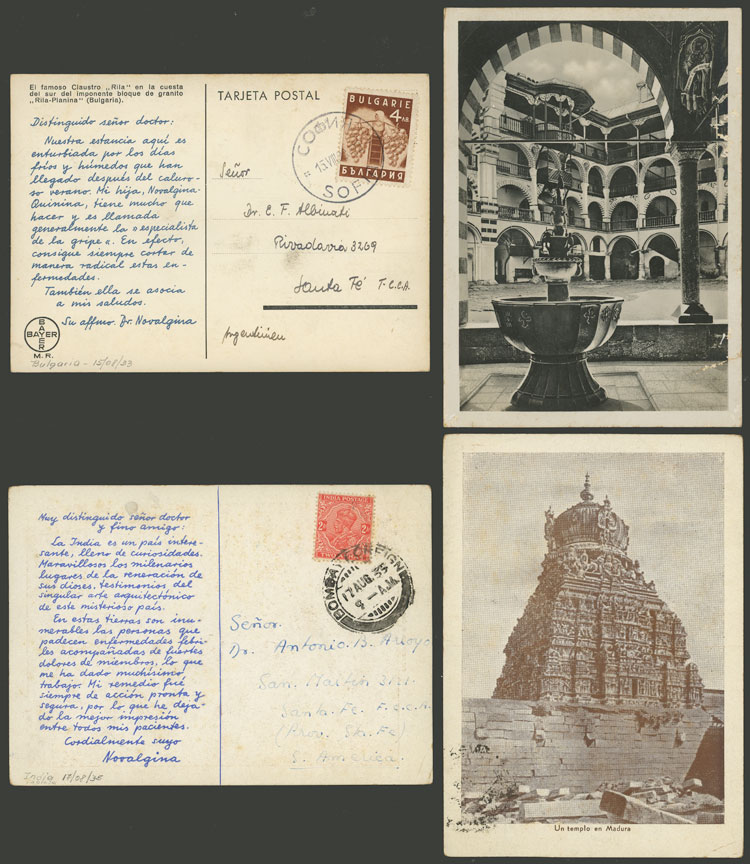 El famoso Claustro „Rila" en la cuesta
del sur del imponente bloque de granito
„Rila-Planina" (Bulgaria).
Distinguido señor doctor:
Nuestra estancia aquí es
enturbiada por los días
fríos y húmedos que han
llegado después del caluro-
so verano. Mi hija, Novalgina-
Quinina, tiene mucho que
hacer y es llamada
generalmente la »especialista
de la gripe«. En efecto,
consigue siempre cortar de
manera radical estas en-
fermedades.
También ella se asocia
a mis saludos.
Su affmo. Dr. Novalgina
BAYER
BAYER
M. R.
Bulgaria - 15/08/33
TARJETA POSTAL
BULGARIE
4 ЛВ
БЪЛГАРИЯ
СОФИЯ
SOF
Señor
Dr. E. F. Albinati
Rivadavia 3269
Santa Fé F.C.C.A.
Argentinien
Muy distinguido señor doctor
y fino amigo:
La India es un país intere-
sante, lleno de curiosidades.
Maravillosos los milenarios
lugares de la veneración de
sus dioses, testimonios del
singular arte arquitectónico
de este misterioso país.
En estas tierras son inu-
merables las personas que
padecen enfermedades febri-
les acompañadas de fuertes
dolores de miembros, lo que
me ha dado muchísimo
trabajo. Mi remedio fué
siempre de acción pronta y
segura, por lo que he deja-
do la mejor impresión
entre todos mis pacientes.
Cordialmente suyo
Novalgina
India 17/08/35
INDIA POSTAGE
BOMBAY FOREIGN
17 AUG. 33
9 - A.M.
Señor.
Dr. Antonio B. Arroyo
San Martín 3121
Santa Fe F.C.C.A.
(Prov. Sta. Fe)
S. America
Un templo en Madura